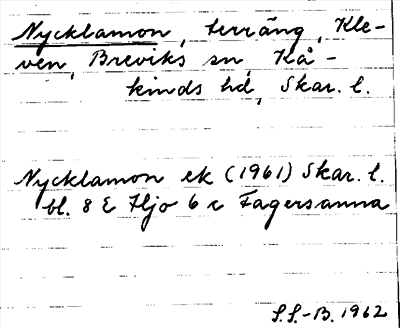 Nycklamon, terräng, Kle-
ven, Breviks sn, Kå-
kinds hd, Skar. l.
Nycklamon ek (1961) Skar. l.
bl. 8 E Hjo 6 c Fagersanna
S.S.-B. 1962